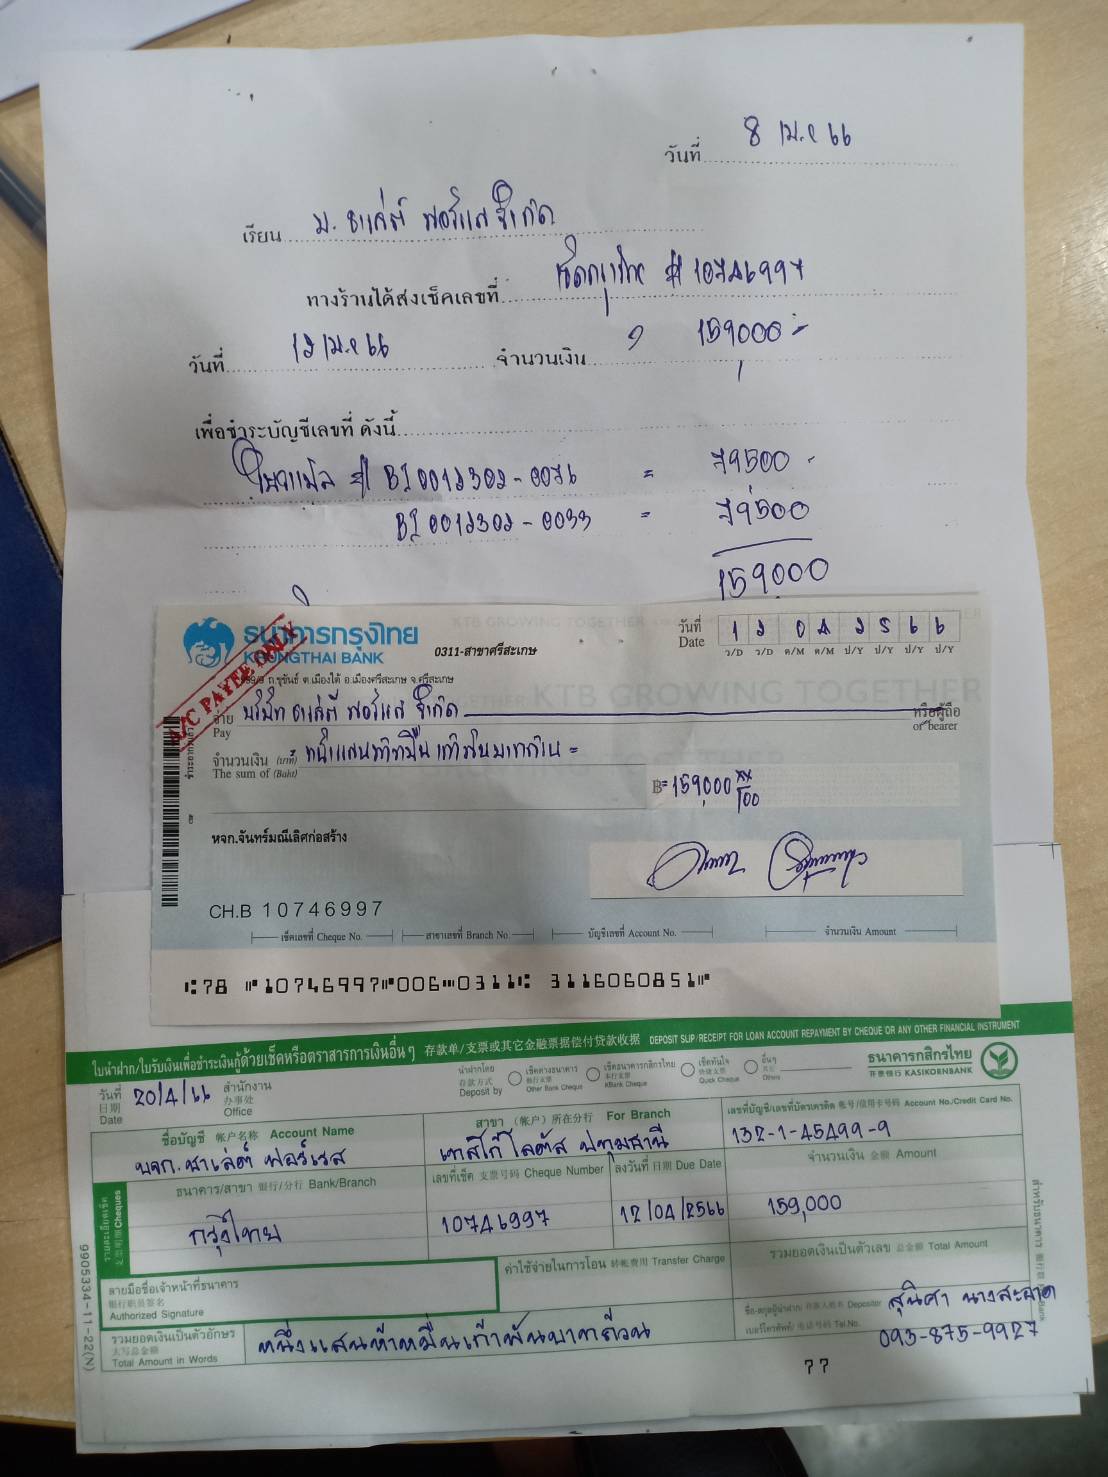 วันที่ 8 เม.ย 66
เรียน บ. ชาเล่ต์ ฟอร์เรส จำกัด
ทางร้านได้ส่งเช็คเลขที่ เช็คกรุงไทย # 10746997
วันที่ 12 เม.ย 66 จำนวนเงิน 159000.-
เพื่อชำระบัญชีเลขที่ ดังนี้
= 79500.-
= 79500
159000
ธนาคารกรุงไทย
KRUNGTHAI BANK
A/C PAYEE ONLY
0311-สาขาศรีสะเกษ
วันที่ Date 1 2 0 4 2 5 6 6
ว/D ว/D ด/M ด/M ป/Y ป/Y ป/Y ป/Y
ถ.ขุขันธ์ ต.เมืองใต้ อ.เมืองศรีสะเกษ จ.ศรีสะเกษ
KTB GROWING TOGETHER
จ่าย Pay บริษัท ชาเล่ต์ ฟอร์เรส จำกัด หรือผู้ถือ or bearer
จำนวนเงิน (บาท) The sum of (Baht) หนึ่งแสนห้าหมื่นเก้าพันบาทถ้วน =
฿ =159,000 xx/100
หจก.จันทร์มณีเลิศก่อสร้าง
CH.B 10746997
เช็คเลขที่ Cheque No. สาขาเลขที่ Branch No. บัญชีเลขที่ Account No. จำนวนเงิน Amount
⑆78 ⑈10746997⑈006⑉0311⑆ 3116060851⑈
ใบนำฝาก/ใบรับเงินเพื่อชำระเงินกู้ด้วยเช็คหรือตราสารการเงินอื่นๆ 存款单/支票或其它金融票据偿付贷款收据 DEPOSIT SLIP/RECEIPT FOR LOAN ACCOUNT REPAYMENT BY CHEQUE OR ANY OTHER FINANCIAL INSTRUMENT
วันที่ 日期 Date 20/4/66 สำนักงาน 办事处 Office
นำฝากโดย 存款方式 Deposit by
เช็คต่างธนาคาร 他行支票 Other Bank Cheque
เช็คธนาคารกสิกรไทย 本行支票 KBank Cheque
เช็คทันใจ 快捷支票 Quick Cheque
อื่นๆ 其它 Others
ธนาคารกสิกรไทย
开泰银行 KASIKORNBANK
ชื่อบัญชี 帐户名称 Account Name
สาขา (帐户) 所在分行 For Branch
เลขที่บัญชี/เลขที่บัตรเครดิต 帐号/信用卡号码 Account No./Credit Card No.
บจก.ชาเล่ต์ ฟอร์เรส
เทสโก้ โลตัส ปทุมธานี
132-1-45499-9
ธนาคาร/สาขา 银行/分行 Bank/Branch
เลขที่เช็ค 支票号码 Cheque Number
ลงวันที่ 日期 Due Date
จำนวนเงิน 金额 Amount
กรุงไทย
10746997
12/04/2566
159,000
ค่าใช้จ่ายในการโอน 转帐费用 Transfer Charge
รวมยอดเงินเป็นตัวเลข 总金额 Total Amount
ลายมือชื่อเจ้าหน้าที่ธนาคาร
银行职员签名
Authorized Signature
สุนิศา นางสะอาด
093-875-9927
รวมยอดเงินเป็นตัวอักษร
大写总金额
Total Amount in Words
หนึ่งแสนห้าหมื่นเก้าพันบาทถ้วน
77
9905334-11-22(N)